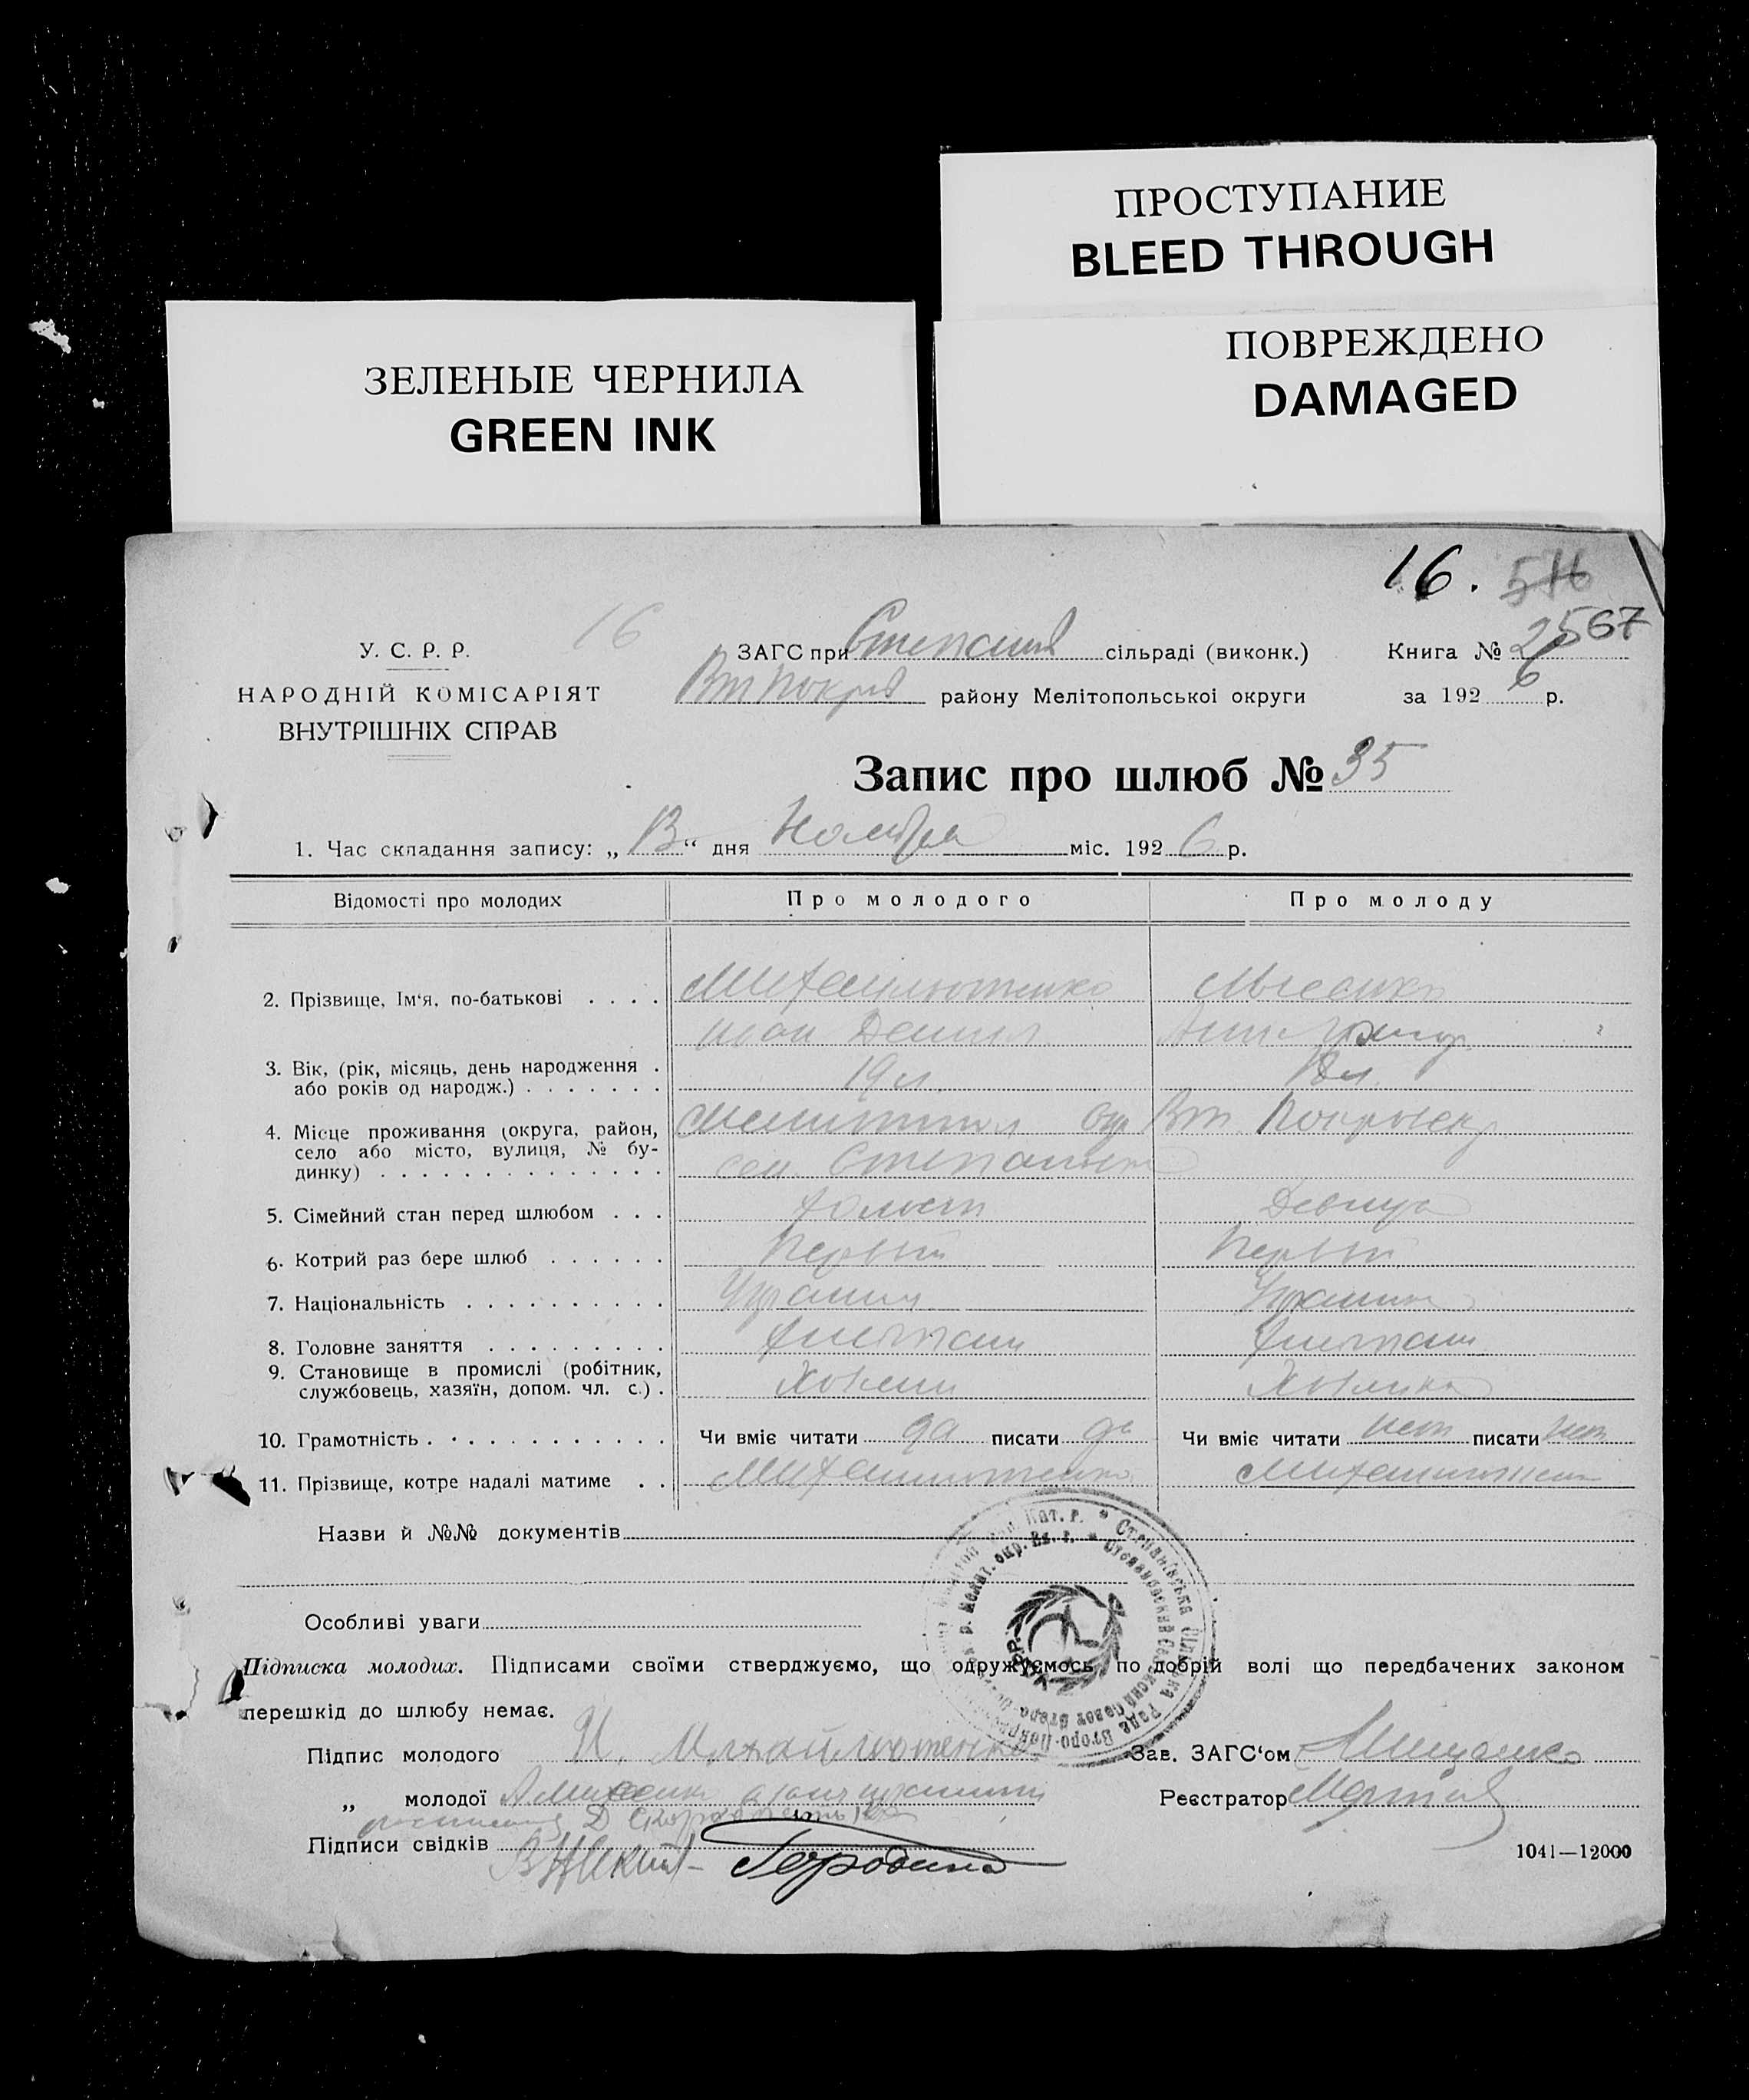 ПРОСТУПАНИЕ
BLEED THROUGH
ЗЕЛЕНЫЕ ЧЕРНИЛА
GREEN INK
ПОВРЕЖДЕНО
DAMAGED
16. 516
567
16
У. С. Р. Р.
НАРОДНІЙ КОМІСАРІЯТ
ВНУТРІШНІХ СПРАВ
ЗАГС при Степанів сільраді (виконк.)
Вт Покров району Мелітопольської округи
Книга № 2
за 1926 р.
Запис про шлюб № 35
1. Час складання запису: „13“ дня Ноября міс. 1926 р.
Відомості про молодих Про молодого Про молоду
2. Прізвище, Ім'я, по-батькові . . . . Михайлютенко
Иван Данил
3. Вік, (рік, місяць, день народження .
або років од народж.) . . . . . . . 19 л 18 л.
4. Місце проживання (округа, район, Мелитопол окр Вт. Покровск р
село або місто, вулиця, № бу-
динку) . . . . . . . . . . . . . . сел. Степановка
5. Сімейний стан перед шлюбом . . . холост Девица
6. Котрий раз бере шлюб . . . . . . Первый Первый
7. Національність . . . . . . . . . . Украинец Украинка
8. Головне заняття . . . . . . . . . хлебопаш хлебопаш
9. Становище в промислі (робітник,
службовець, хазяїн, допом. чл. с.) .
10. Грамотність . . . . . . . . . . . . Чи вміє читати да писати да Чи вміє читати нет писати нет
11. Прізвище, котре надалі матиме . . Михайлютенко Михайлютенко
Назви й №№ документів
Особливі уваги
Степанівська Сільська Рада Второ-Покровс
Степановский Сельский Совет Второ-По р. Меліт. окр.
УСРР
Підписка молодих. Підписами своїми стверджуємо, що одружуємось по добрій волі що передбачених законом
перешкід до шлюбу немає.
Підпис молодого И. Михайлютенко
Зав. ЗАГС‘ом
„ молодої
Реєстратор
Підписи свідків Городина
1041—12000